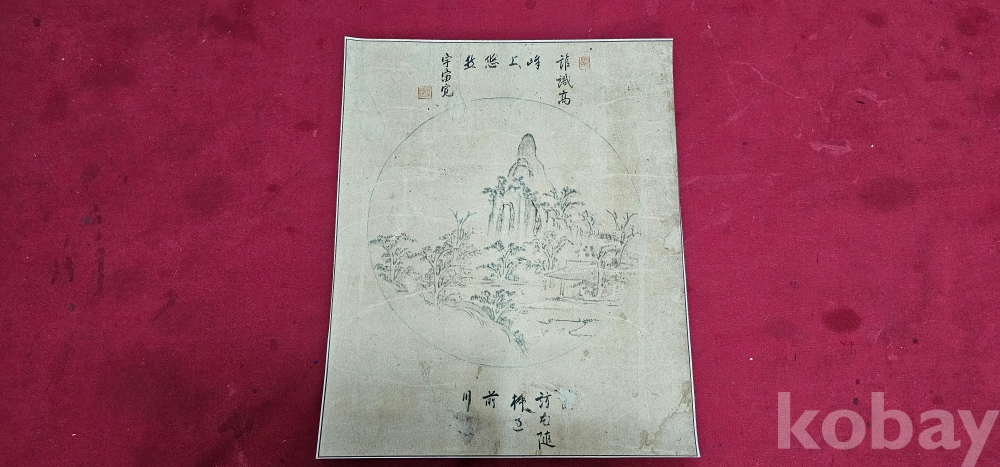 誰識高
峰
上
悠
宇宙寬
訪花隨
柳過
前
川
kobay